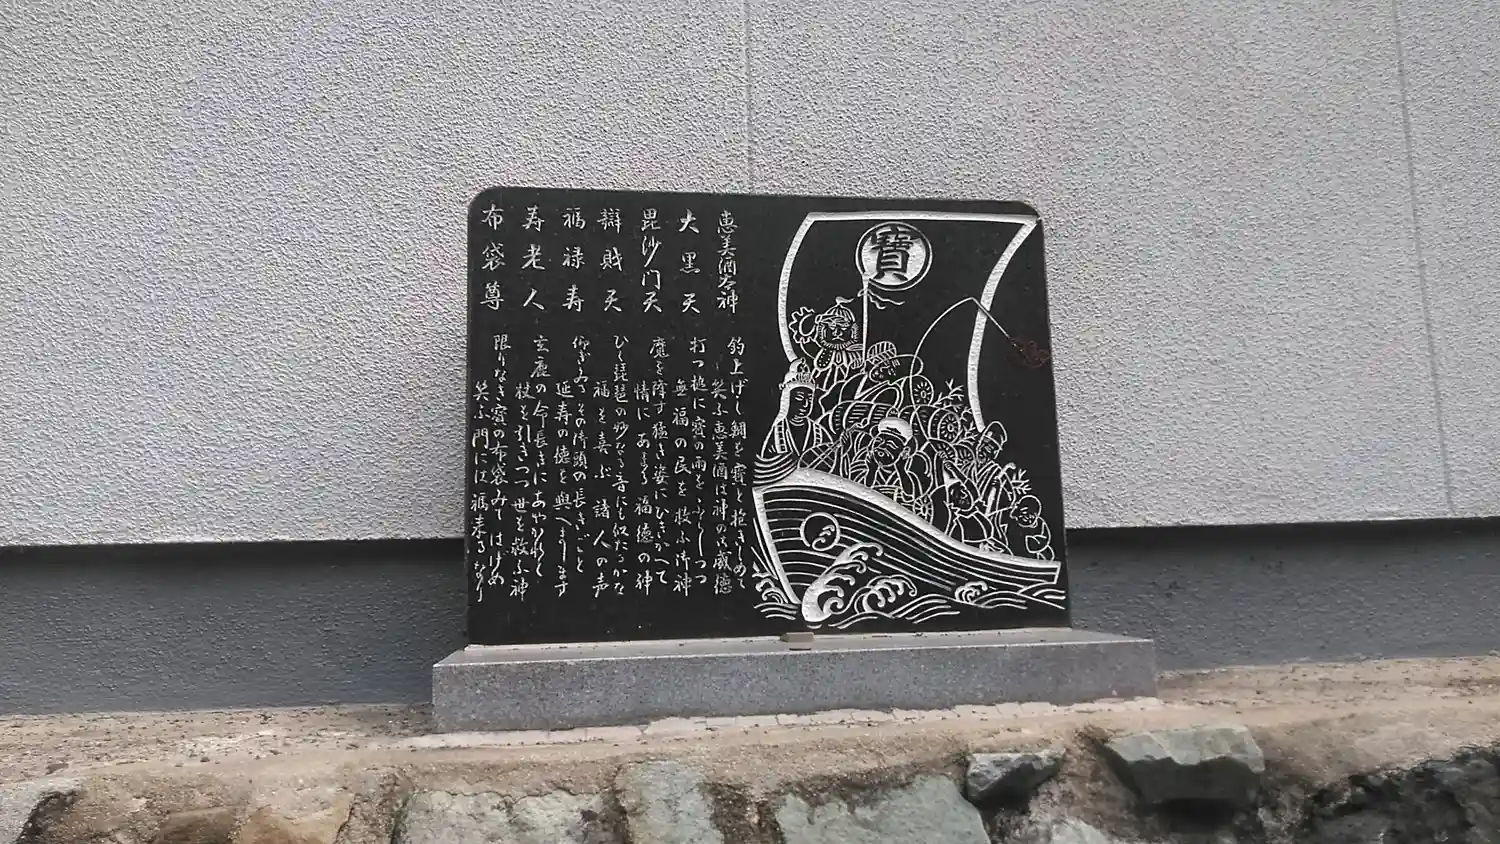 寶
恵美酒太神
釣上げし鯛を寶と抱きしめて
笑ふ恵美酒は神の御威徳
大黒天
打つ槌に寶の雨をふらしつつ
無福の民を救ふ御神
毘沙门天
魔を降す猛き姿にひきかへて
情にあまる福徳の神
辯財天
ひく琵琶の妙なる音にも似たるかな
福を喜ぶ諸人の声
福禄寿
仰ぎみるその御頭の長きごと
延寿の徳を與へまします
寿老人
玄鹿の命長きにあやかれと
杖を引きつつ世を救ふ神
布袋尊
限りなき寶の布袋みてはげめ
笑ふ門には福来るなり